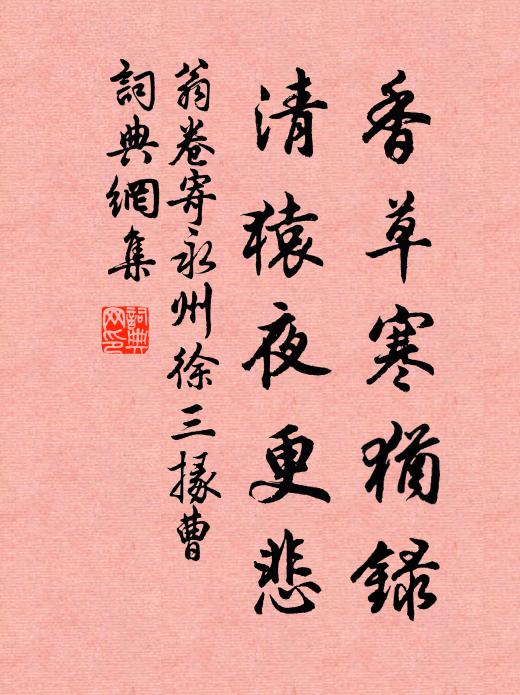 香草寒猶錄
清猿夜更悲
翁卷寄永州徐三掾曹
詞典網集
詞典网印